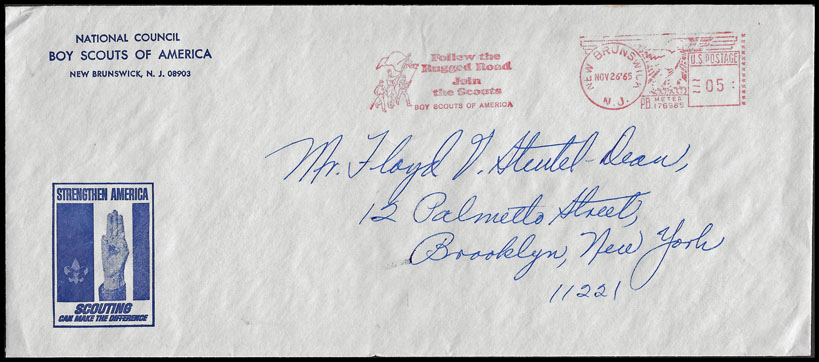 NATIONAL COUNCIL
BOY SCOUTS OF AMERICA
NEW BRUNSWICK, N. J. 08903
Follow the
Rugged Road
Join
the Scouts
BOY SCOUTS OF AMERICA
NEW BRUNSWICK
NOV 26'65
N.J.
U.S. POSTAGE
05
PB METER
Mr. Floyd V. Steutel-Dean,
12 Palmetto Street,
Brooklyn, New York
11221
STRENGTHEN AMERICA
SCOUTING
CAN MAKE THE DIFFERENCE